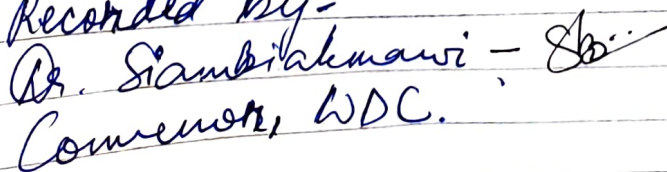 Recorded by-
Dr. Siambiakmawi -
Convenor, WDC.